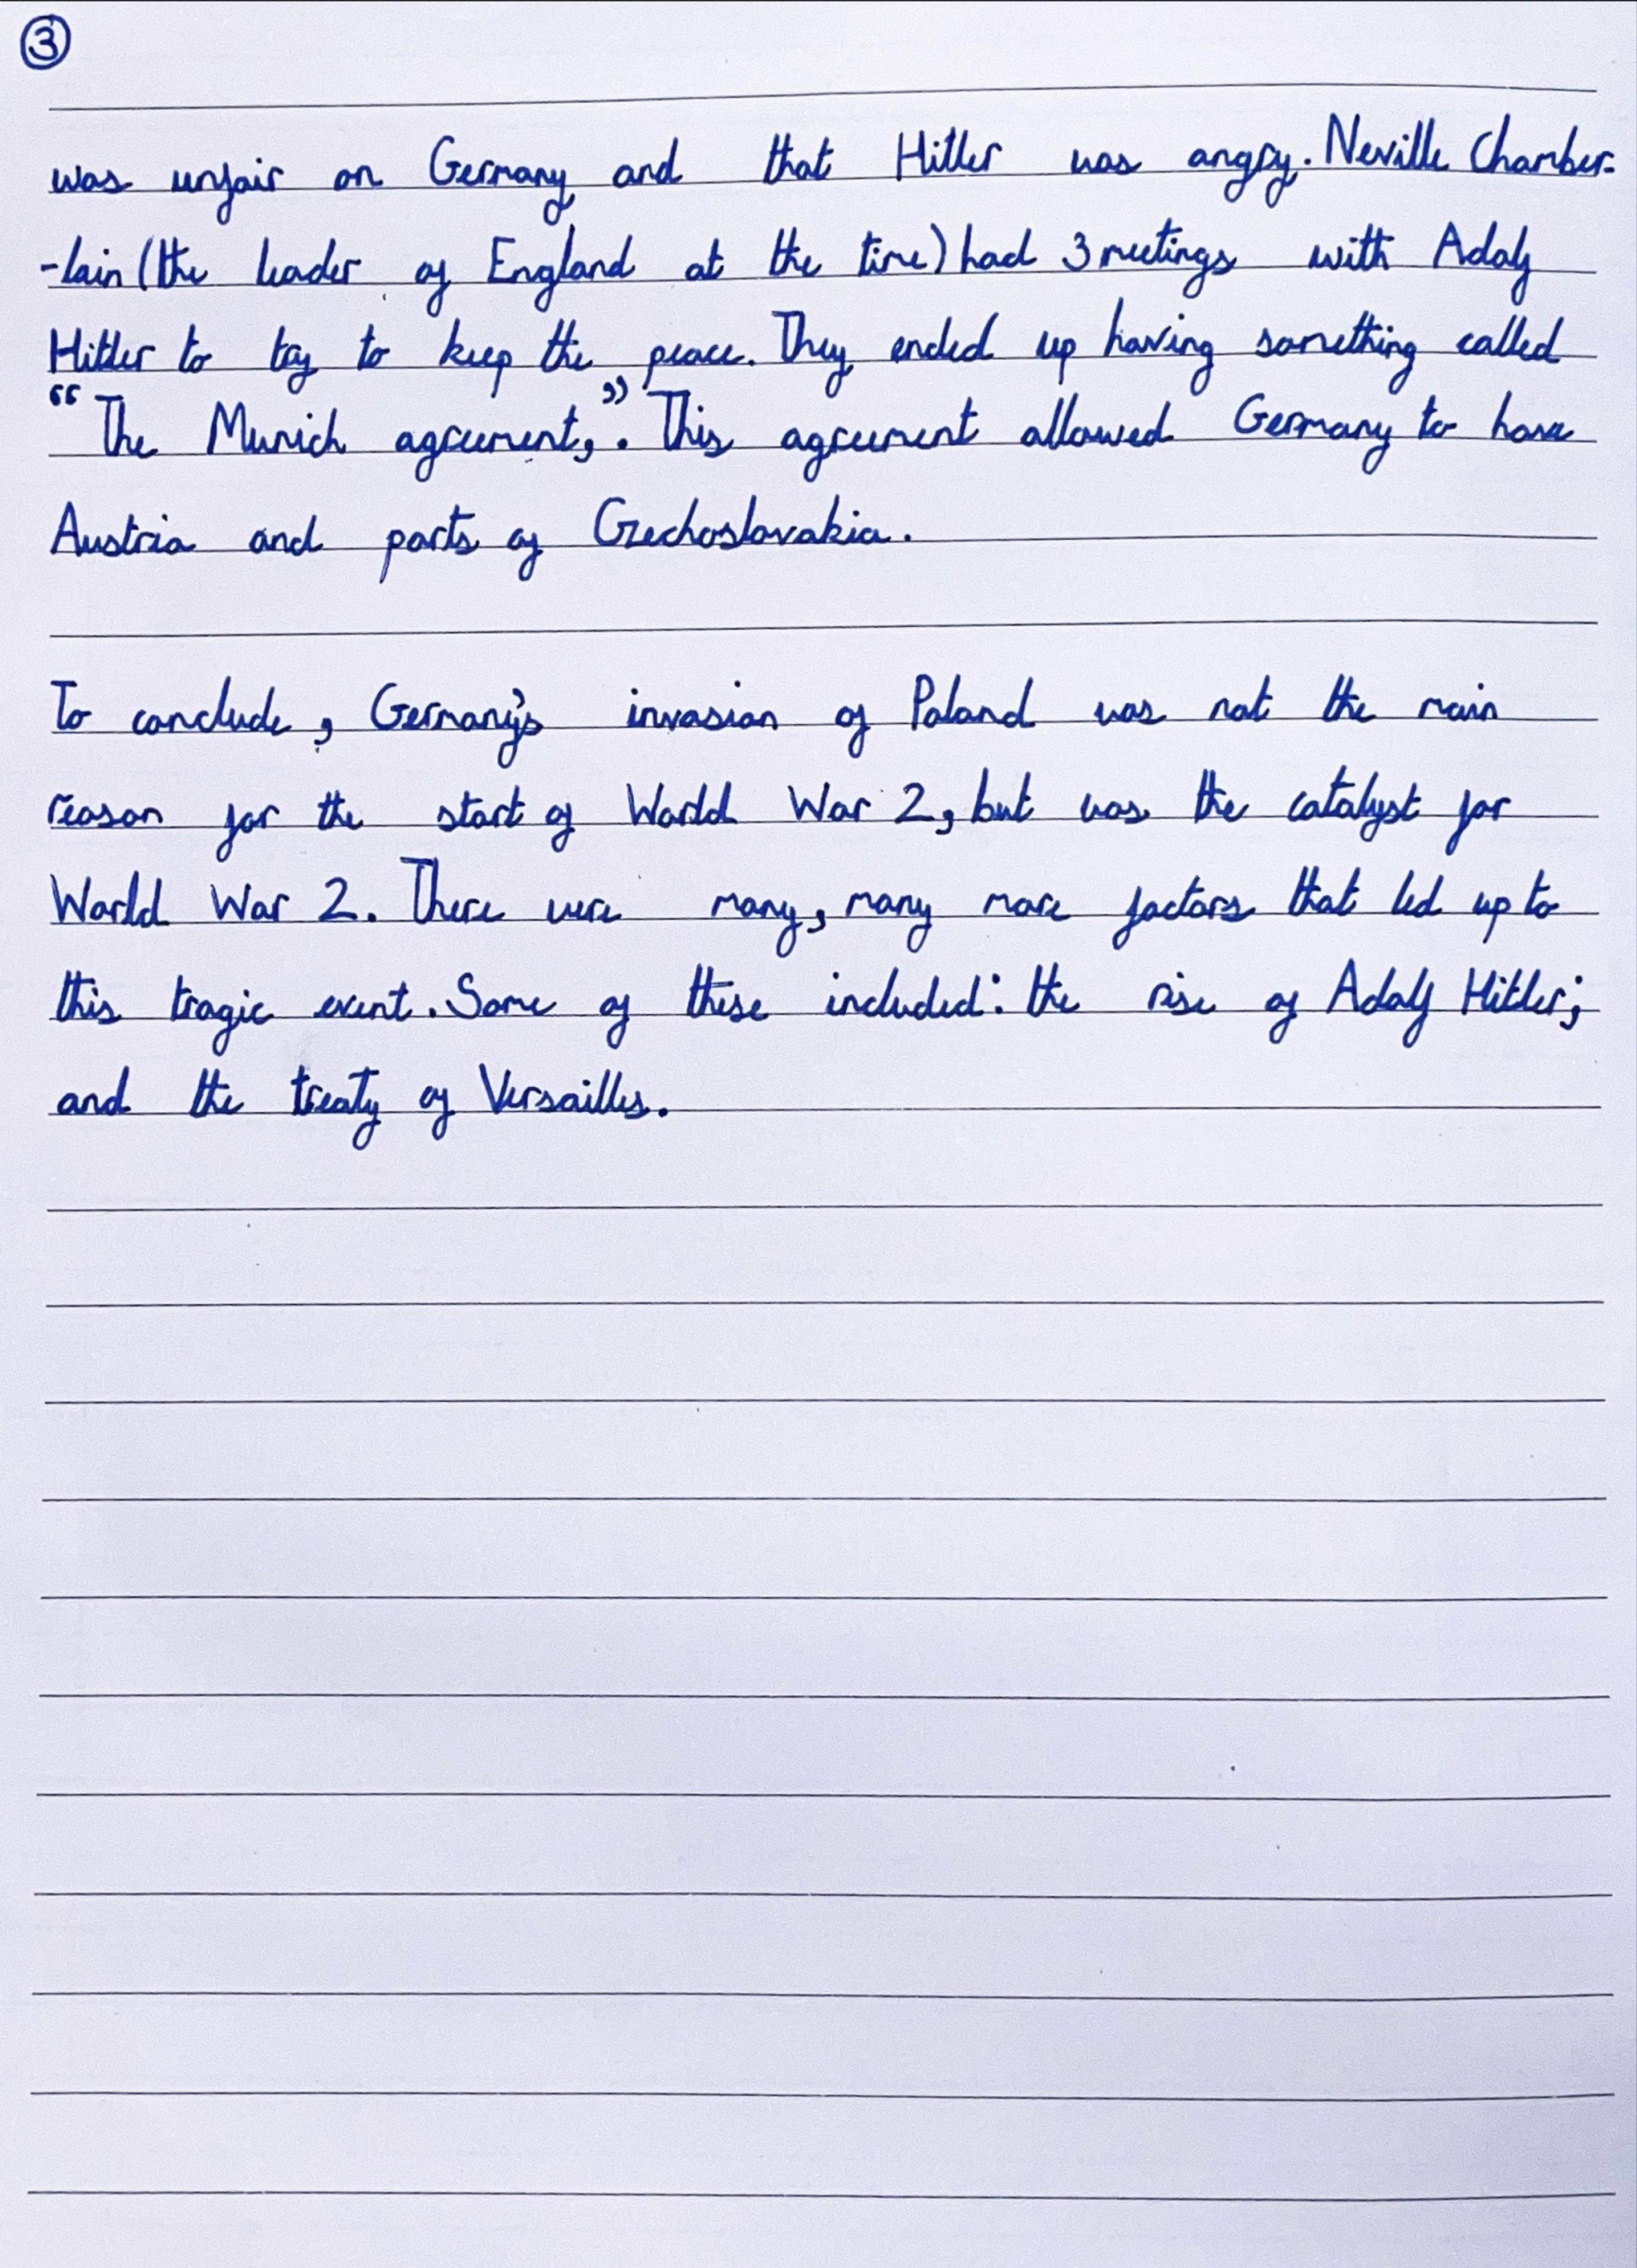 ③
was unfair on Germany and that Hitler was angry. Neville Chamber-
-lain (the leader of England at the time) had 3 meetings with Adolf
Hitler to try to keep the peace. They ended up having something called
“The Munich agreement,”. This agreement allowed Germany to have
Austria and parts of Czechoslovakia.
To conclude, Germany's invasion of Poland was not the main
reason for the start of World War 2, but was the catalyst for
World War 2. There were many, many more factors that led up to
this tragic event. Some of these included: the rise of Adolf Hitler;
and the treaty of Versailles.